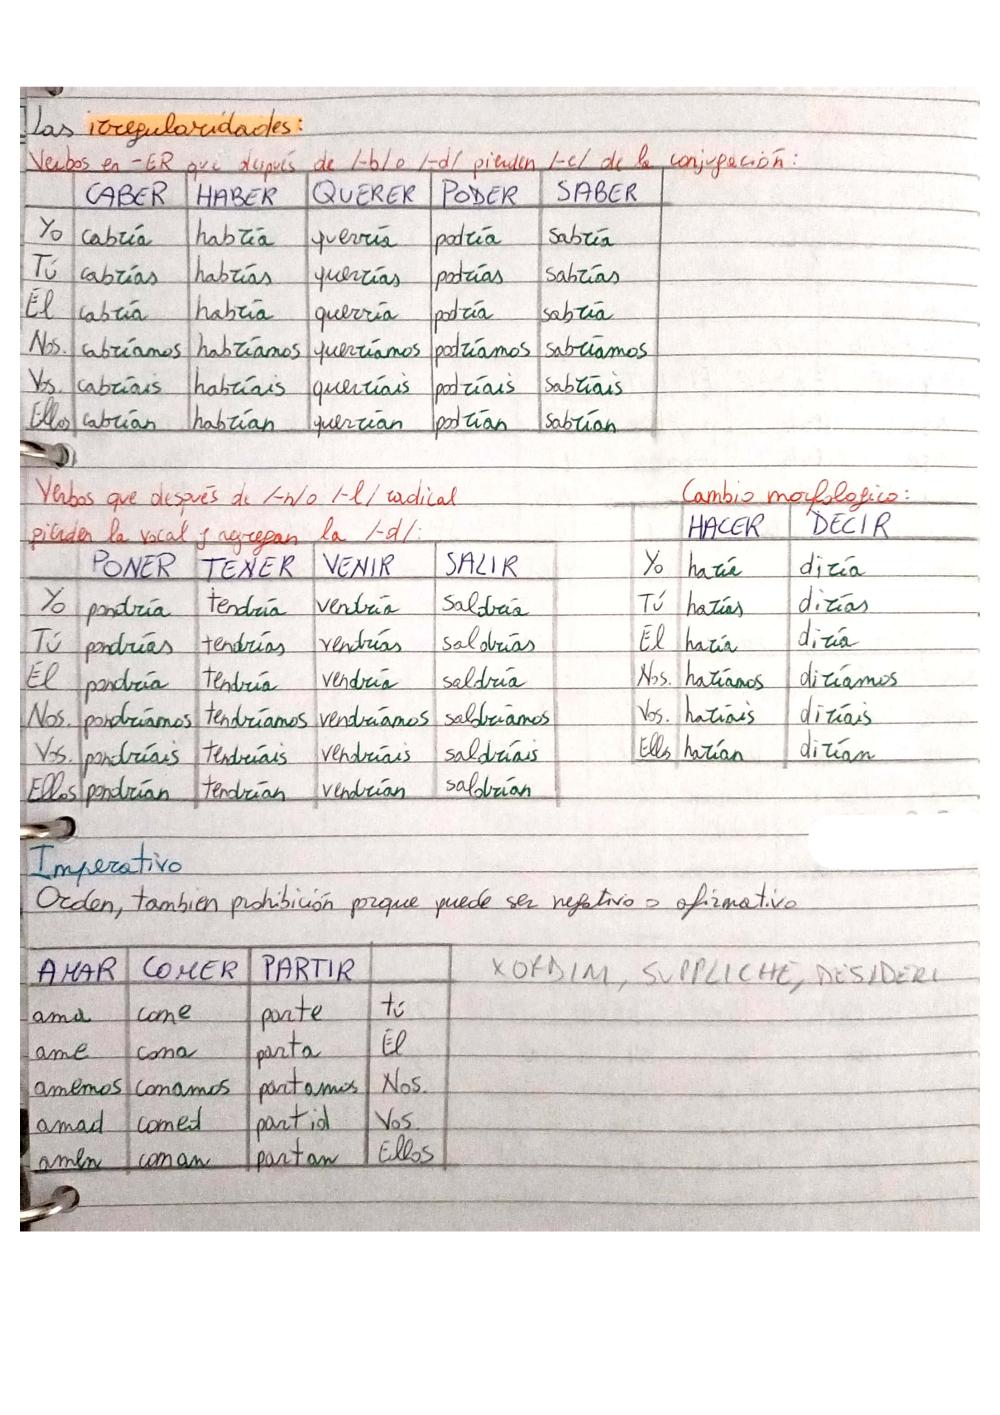 Las irregularidades:
Verbos en -ER que después de /-b/ o /-d/ pierden /-e/ de la conjugación:
CABER HABER QUERER PODER SABER
Yo cabría habría querría podría sabría
Tú cabrías habrías querrías podrías sabrías
Él cabría habría querría podría sabría
Nos. cabríamos habríamos querríamos podríamos sabríamos
Vos. cabríais habríais querríais podríais sabríais
Ellos cabrían habrían querrían podrían sabrían
Verbos que después de /-n/ o /-l/ radical
pierden la vocal y agregan la /-d/:
PONER TENER VENIR SALIR
Yo pondría tendría vendría saldría
Tú pondrías tendrías vendrías saldrías
Él pondría tendría vendría saldría
Nos. pondríamos tendríamos vendríamos saldríamos
Vos. pondríais tendríais vendríais saldríais
Ellos pondrían tendrían vendrían saldrían
Cambio morfologico:
HACER DECIR
Yo haría diría
Tú harías dirías
Él haría diría
Nos. haríamos diríamos
Vos. haríais diríais
Ellos harían dirían
Imperativo
Orden, tambien prohibición porque puede ser negativo o afirmativo
AMAR COMER PARTIR
ama come parte tú
ame coma parta Él
amemos comamos partamos Nos.
amad comed partid Vos.
amen coman partan Ellos
X ORDINI, SUPPLICHE, DESIDERI